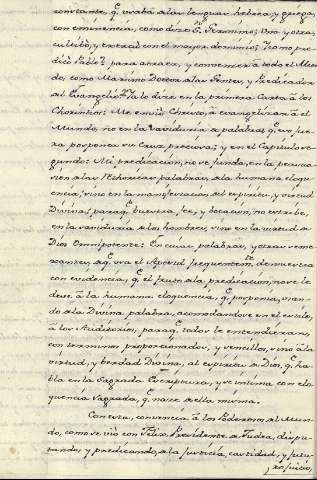 constante, q.e usaba alas lenguas hebrea, y griega,
con eminencia, como dize Sn. Geronimo; Una y otra,
cultibò, y exercitò con el mayor dominio; y como pre-
dicò Pablo? para atraer, y convencer à todo el Mun-
do, como Maximo Doctor alas Gentes, y Predicador
al Evangelio? Ya lo dize en la primera Carta à los
Chorintios: Me embiò Christo, à evangelizar à el
Mundo, no en la Savidurìa a palabras, q.e eso fue-
ra posponer su Cruz preciosa; y en el Capitulo se-
gundo: Mi predicacion, no se funda, en la persua-
cion alas rethoricas palabras, ala humana eloq-
uencia; sino en la manifestacion del espiritu, y virtud
Divina; para q.e vuestra fee, y vocacion, no estribe,
en la savidurìa a los hombres, sino en la virtud a
Dios Omnipotente: En cuias palabras, y otras seme-
xantes, a q.e usa el Apostol frequentem.te demuestra
con evidencia, q.e el fruto ala predicacion, no se le
deve à la humana eloquencia, q.e posponia, usan-
do ala Divina palabra, acomodandose en el estilo,
à los Auditorios, para q.e todos le entendieran,
con terminos proporcionados, y sencillos, sino àla
virtud, y bondad Divina, al espiritu a Dios, q.e ha-
bla en la Sagrada Escriptura, y se intima con elo-
quencia Sagrada, q.e nace a ella misma.
Con esta, convencia à los Poderosos al Mun-
do, como se viò con Felix, Presidente a Judea, dispu-
tando, y predicando, ala Justicia, castidad, y futu-
ro juicio,